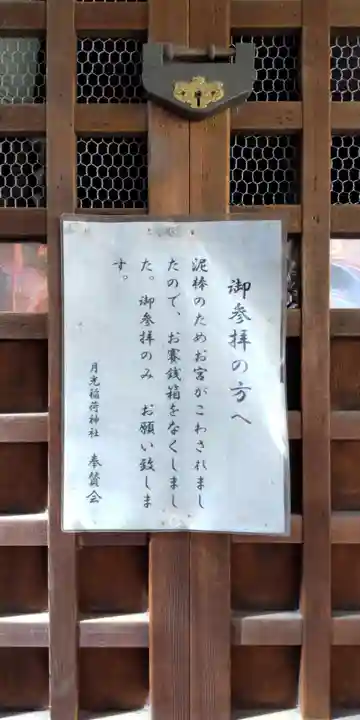 御参拝の方へ
泥棒のためお宮がこわされまし
たので、お賽銭箱をなくしまし
た。御参拝のみ　お願い致しま
す。
月光稲荷神社　奉賛会